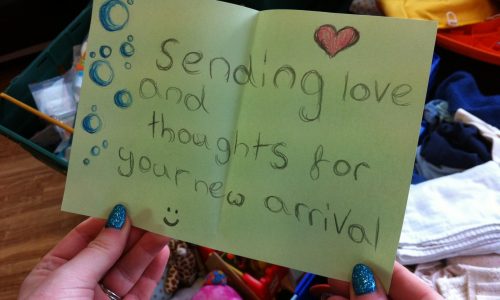 Sending love
and
thoughts for
your new arrival